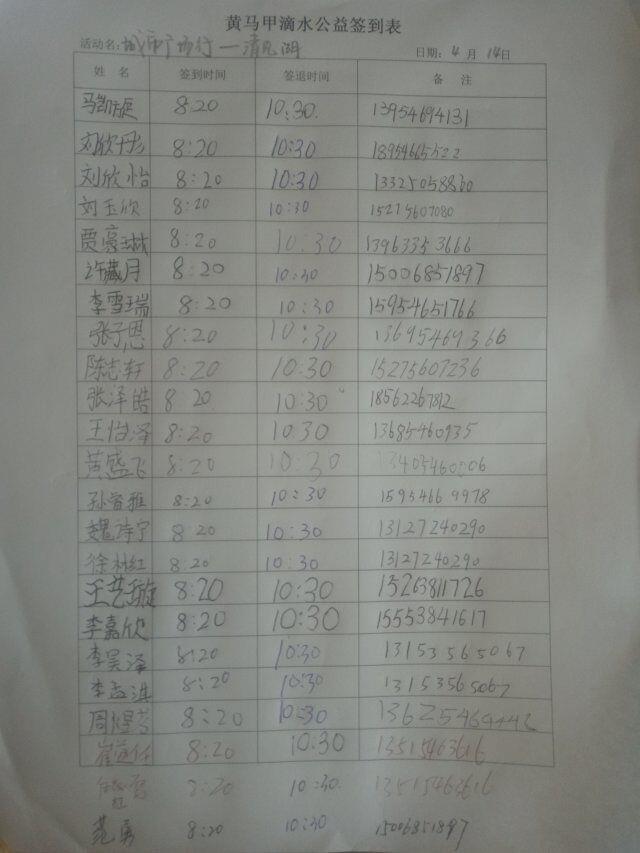 黄马甲滴水公益签到表
活动名:城市广场行一清风湖 日期: 4 月 14日
姓 名 签到时间 签退时间 备 注
8:20 10:30. 13954694131
刘欣彤 8:20 10:30
刘欣怡 8:20 10:30 13325058860
刘玉欣 8:20 10:30 15275607080
贾豪 8:20 10:30 13963353666
许藏月 8:20 10:30 15006851897
李雪瑞 8:20 10:30 15954651766
张子恩 8:20 10:30 13695469366
陈志轩 8:20 10:30 15275607236
张泽皓 8 20 10:30 18562267812
王怡泽 8:20 10:30 13685460935
黄盛飞 8:20 10:30
8:20 10:30 1595466 9978
魏诗宁 8:20 10:30 13127240290
徐红 8:20 10:30 13127240290
王艺璇 8:20 10:30 15263811726
李嘉欣 8:20 10:30 15553841617
李昊泽 8:20 10:30 13153565067
李孟淇 8:20 10:30 13153565067
周煜 8:20 10:30
崔 8:20 10:30 13515463616
8:20 10:30. 13515463616
范勇 8:20 10:30 15006851897